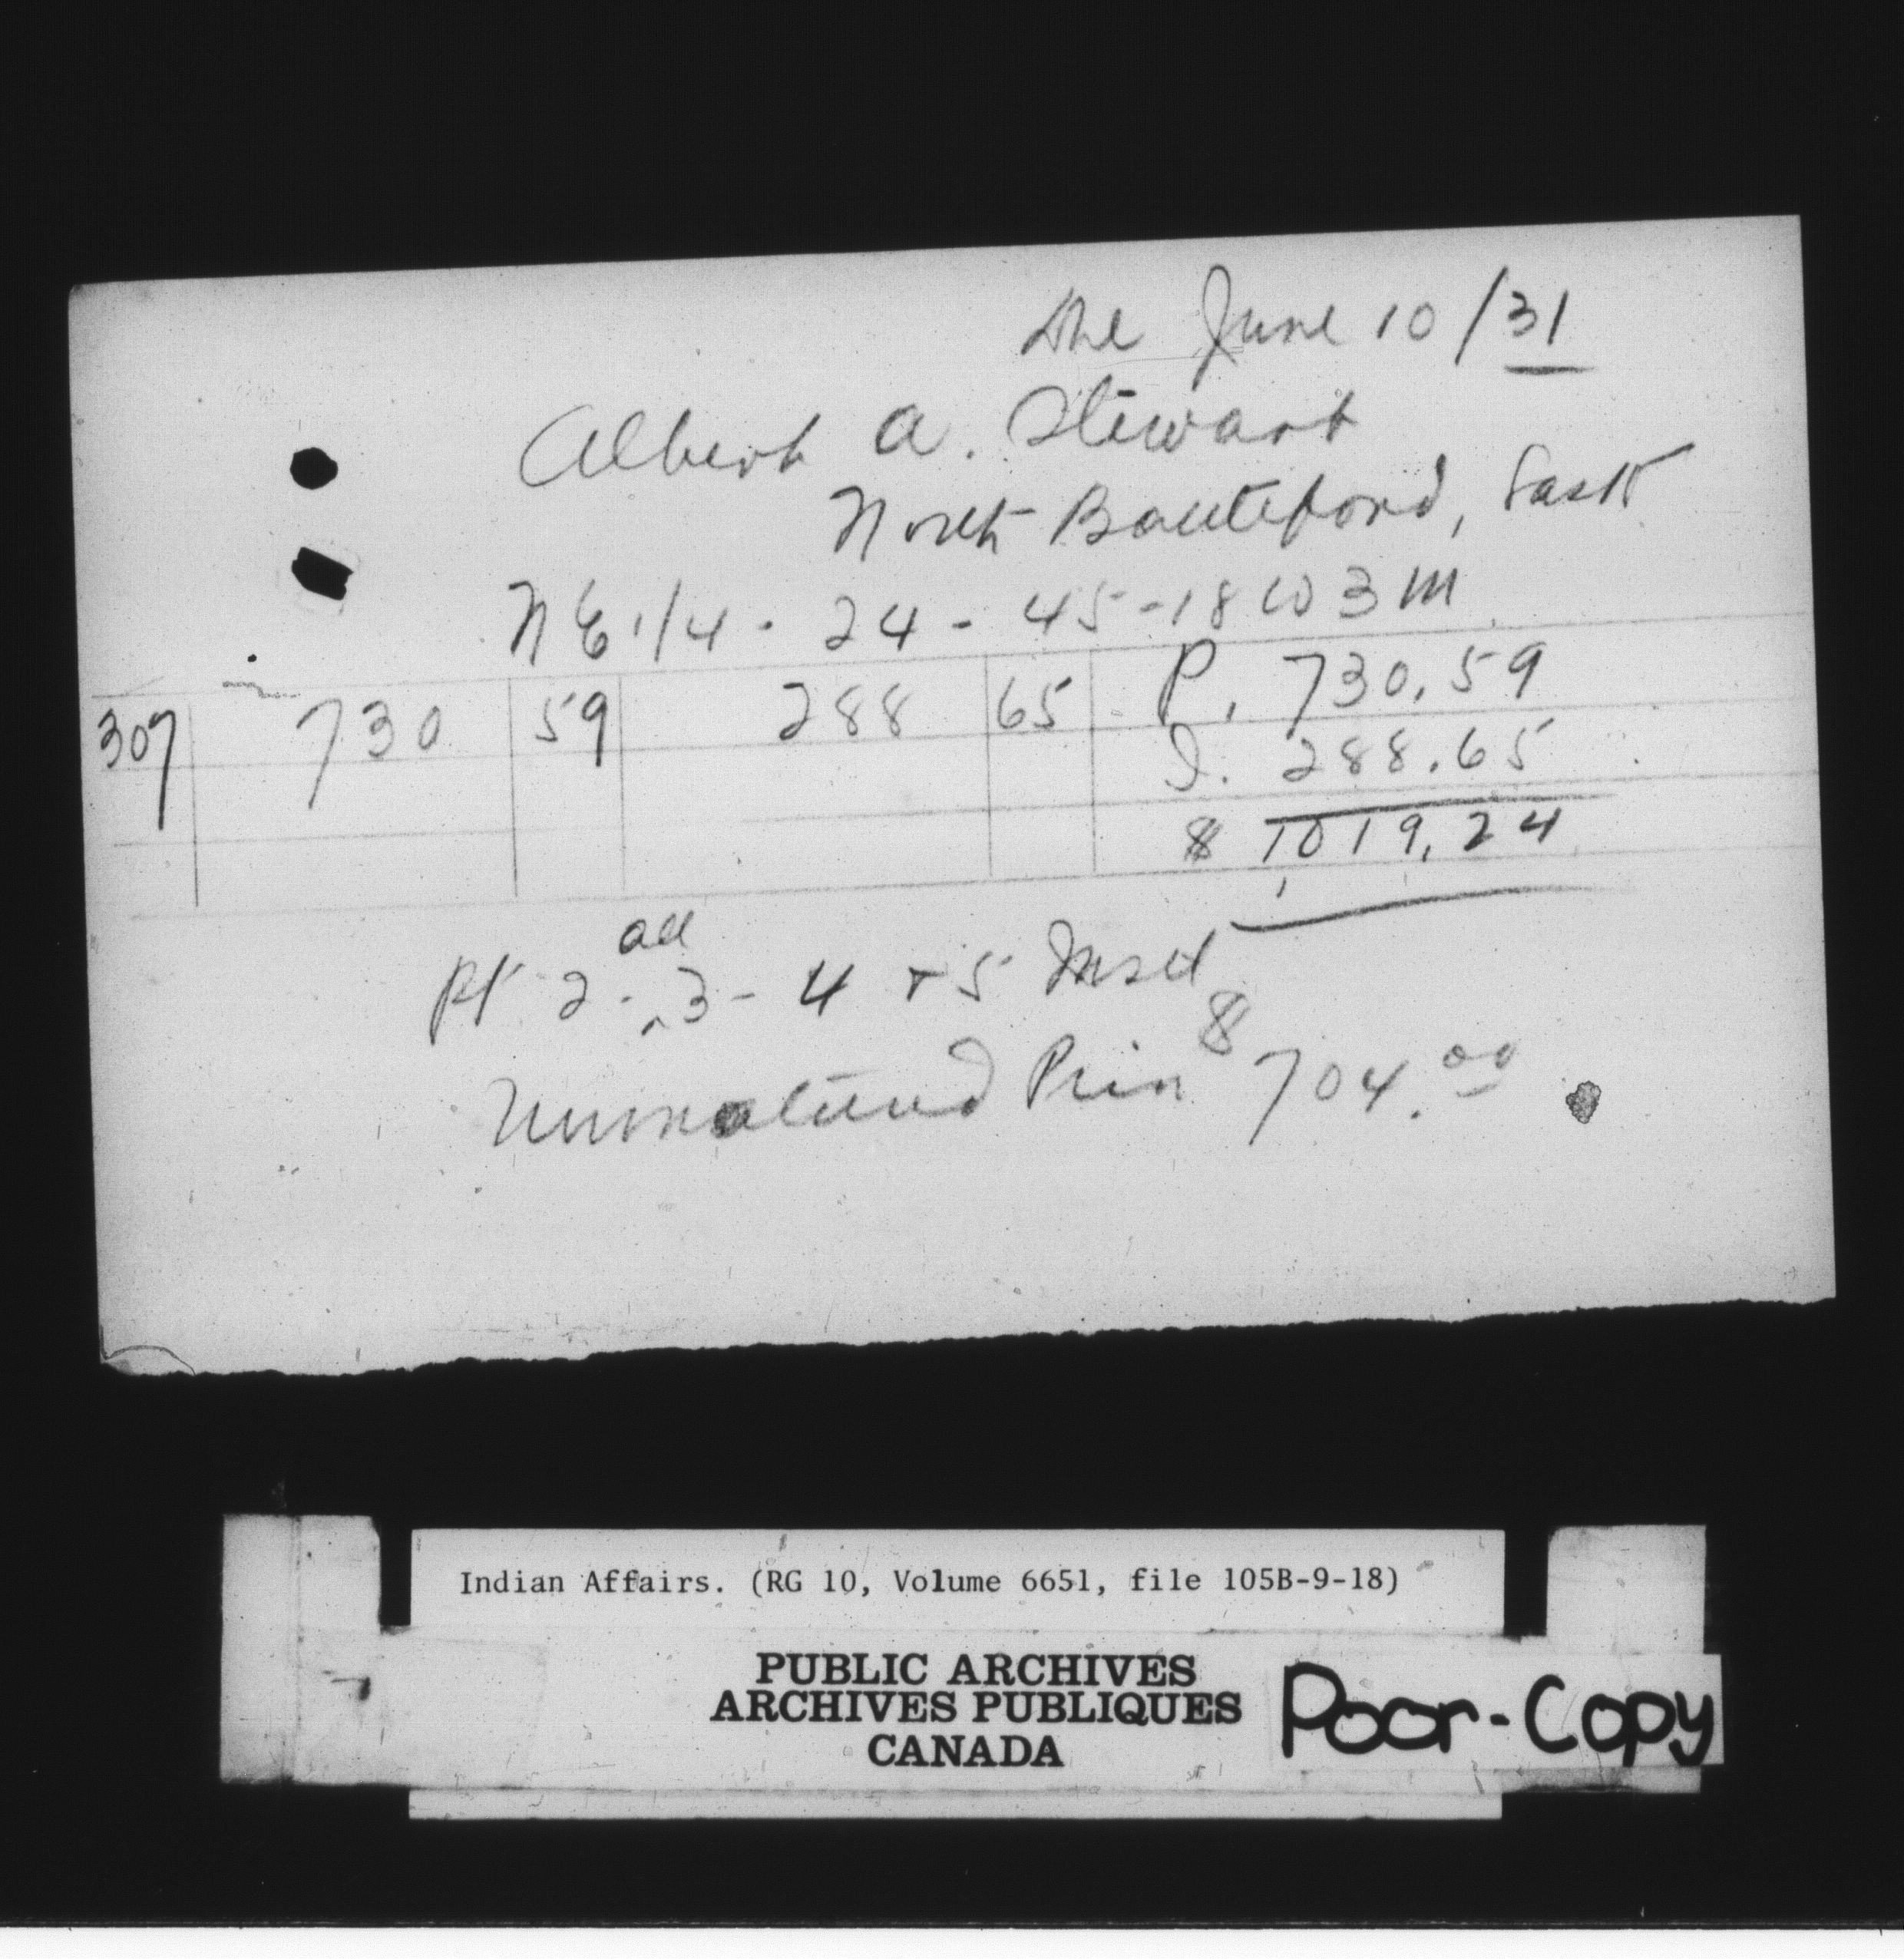 due June 10/31
Albert A. Stewart
North Battleford, Sask
NE 1/4 - 24 - 45 - 18 W 3 M
307 730 59 288 65 P. 730.59
I. 288.65
$ 1019.24
all
pt 2 - ^ 3 - 4 + 5 Inst
Unmatured Prin $704.00
Indian Affairs. (RG 10, Volume 6651, file 105B-9-18)
PUBLIC ARCHIVES
ARCHIVES PUBLIQUES
CANADA
Poor-Copy